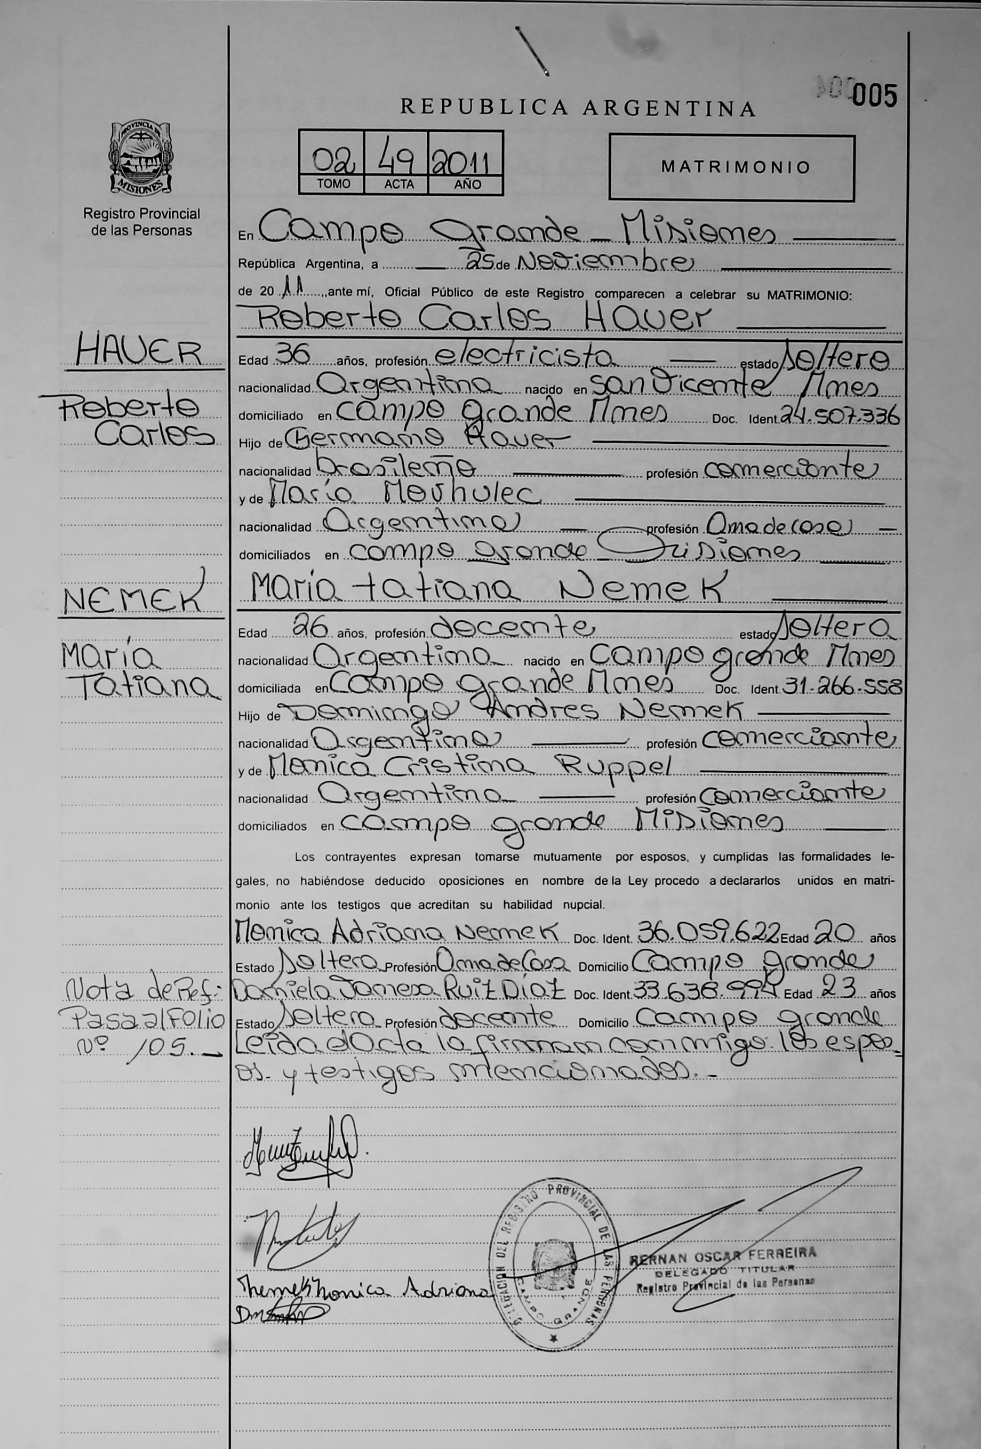 005
REPUBLICA ARGENTINA
02 49 2011
TOMO ACTA AÑO
MATRIMONIO
PROVINCIA DE
MISIONES
Registro Provincial
de las Personas
En Campo Grande - Misiones
República Argentina, a 25 de Noviembre
de 2011, ante mí, Oficial Público de este Registro comparecen a celebrar su MATRIMONIO:
Roberto Carlos Hauer
HAUER
Roberto
Carlos
Edad 36 años, profesión electricista estado Soltero
nacionalidad Argentina nacido en San Vicente Mnes
domiciliado en Campo Grande Mnes Doc. Ident. 24.507.336
Hijo de Germano Hauer
nacionalidad brasileña profesión comerciante
y de María Movhulec
nacionalidad Argentina profesión Ama de Casa
domiciliados en campo grande Misiones
María Tatiana Nemek
NEMEK
María
Tatiana
Edad 26 años, profesión docente estado Soltera
nacionalidad Argentina nacido en Campo grande Mnes
domiciliada en Campo grande Mnes Doc. Ident. 31.266.558
Hijo de Domingo Andres Nemek
nacionalidad Argentina profesión comerciante
y de Monica Cristina Ruppel
nacionalidad Argentina profesión Comerciante
domiciliados en campo grande Misiones
Los contrayentes expresan tomarse mutuamente por esposos, y cumplidas las formalidades le-
gales, no habiéndose deducido oposiciones en nombre de la Ley procedo a declararlos unidos en matri-
monio ante los testigos que acreditan su habilidad nupcial.
Monica Adriana Nemek Doc. Ident. 36.059.622 Edad 20 años
Estado Soltera Profesión Ama de Casa Domicilio Campo grande
Daniela Vanesa Ruiz Díaz Doc. Ident. 33.638.994 Edad 23 años
Estado Soltera Profesión docente Domicilio Campo grande
Leída el Acta la firman conmigo los espos-
os y testigos mencionados.-
Nota de Ref:
Pasa al Folio
Nº 105.-
Nemek Monica Adriana
DELEGACION DEL REGISTRO PROVINCIAL DE LAS PERSONAS
CAMPO GRANDE
HERNAN OSCAR FERREIRA
DELEGADO TITULAR
Registro Provincial de las Personas